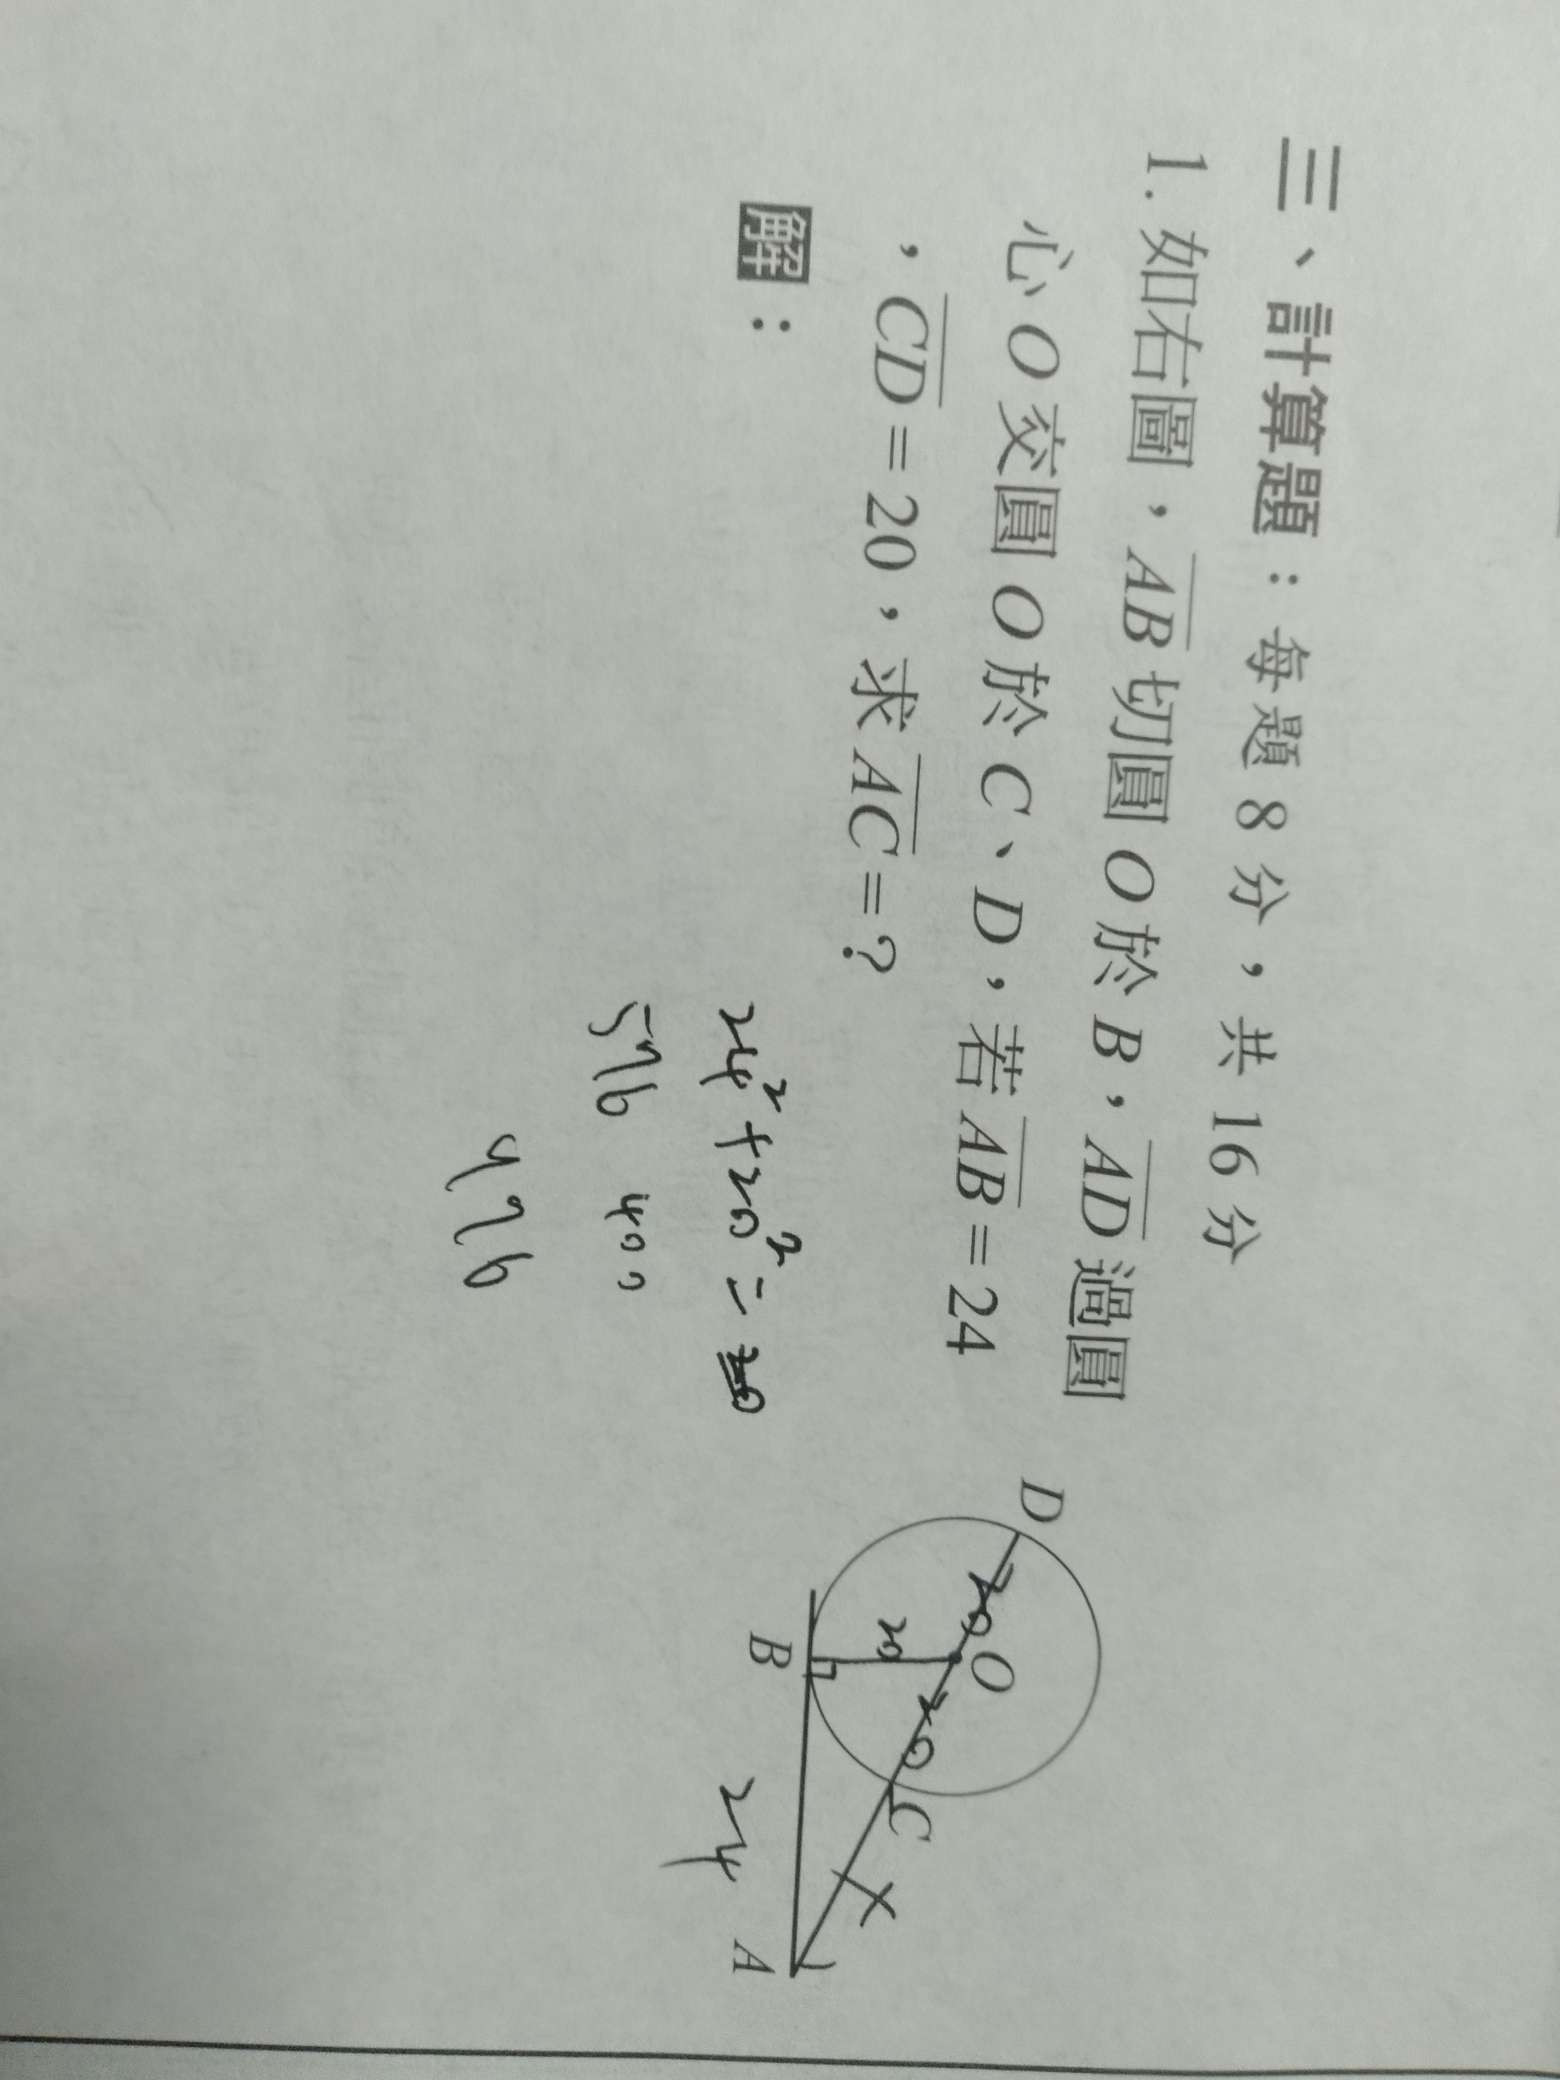 三、計算題：每題 8 分，共 16 分
1. 如右圖，AB 切圓 O 於 B，AD 過圓
心 O 交圓 O 於 C、D，若 AB = 24
，CD = 20，求 AC = ?
解：
24² + 20² =
576 400
976
D
20
O
20
20
C
x
B
24
A